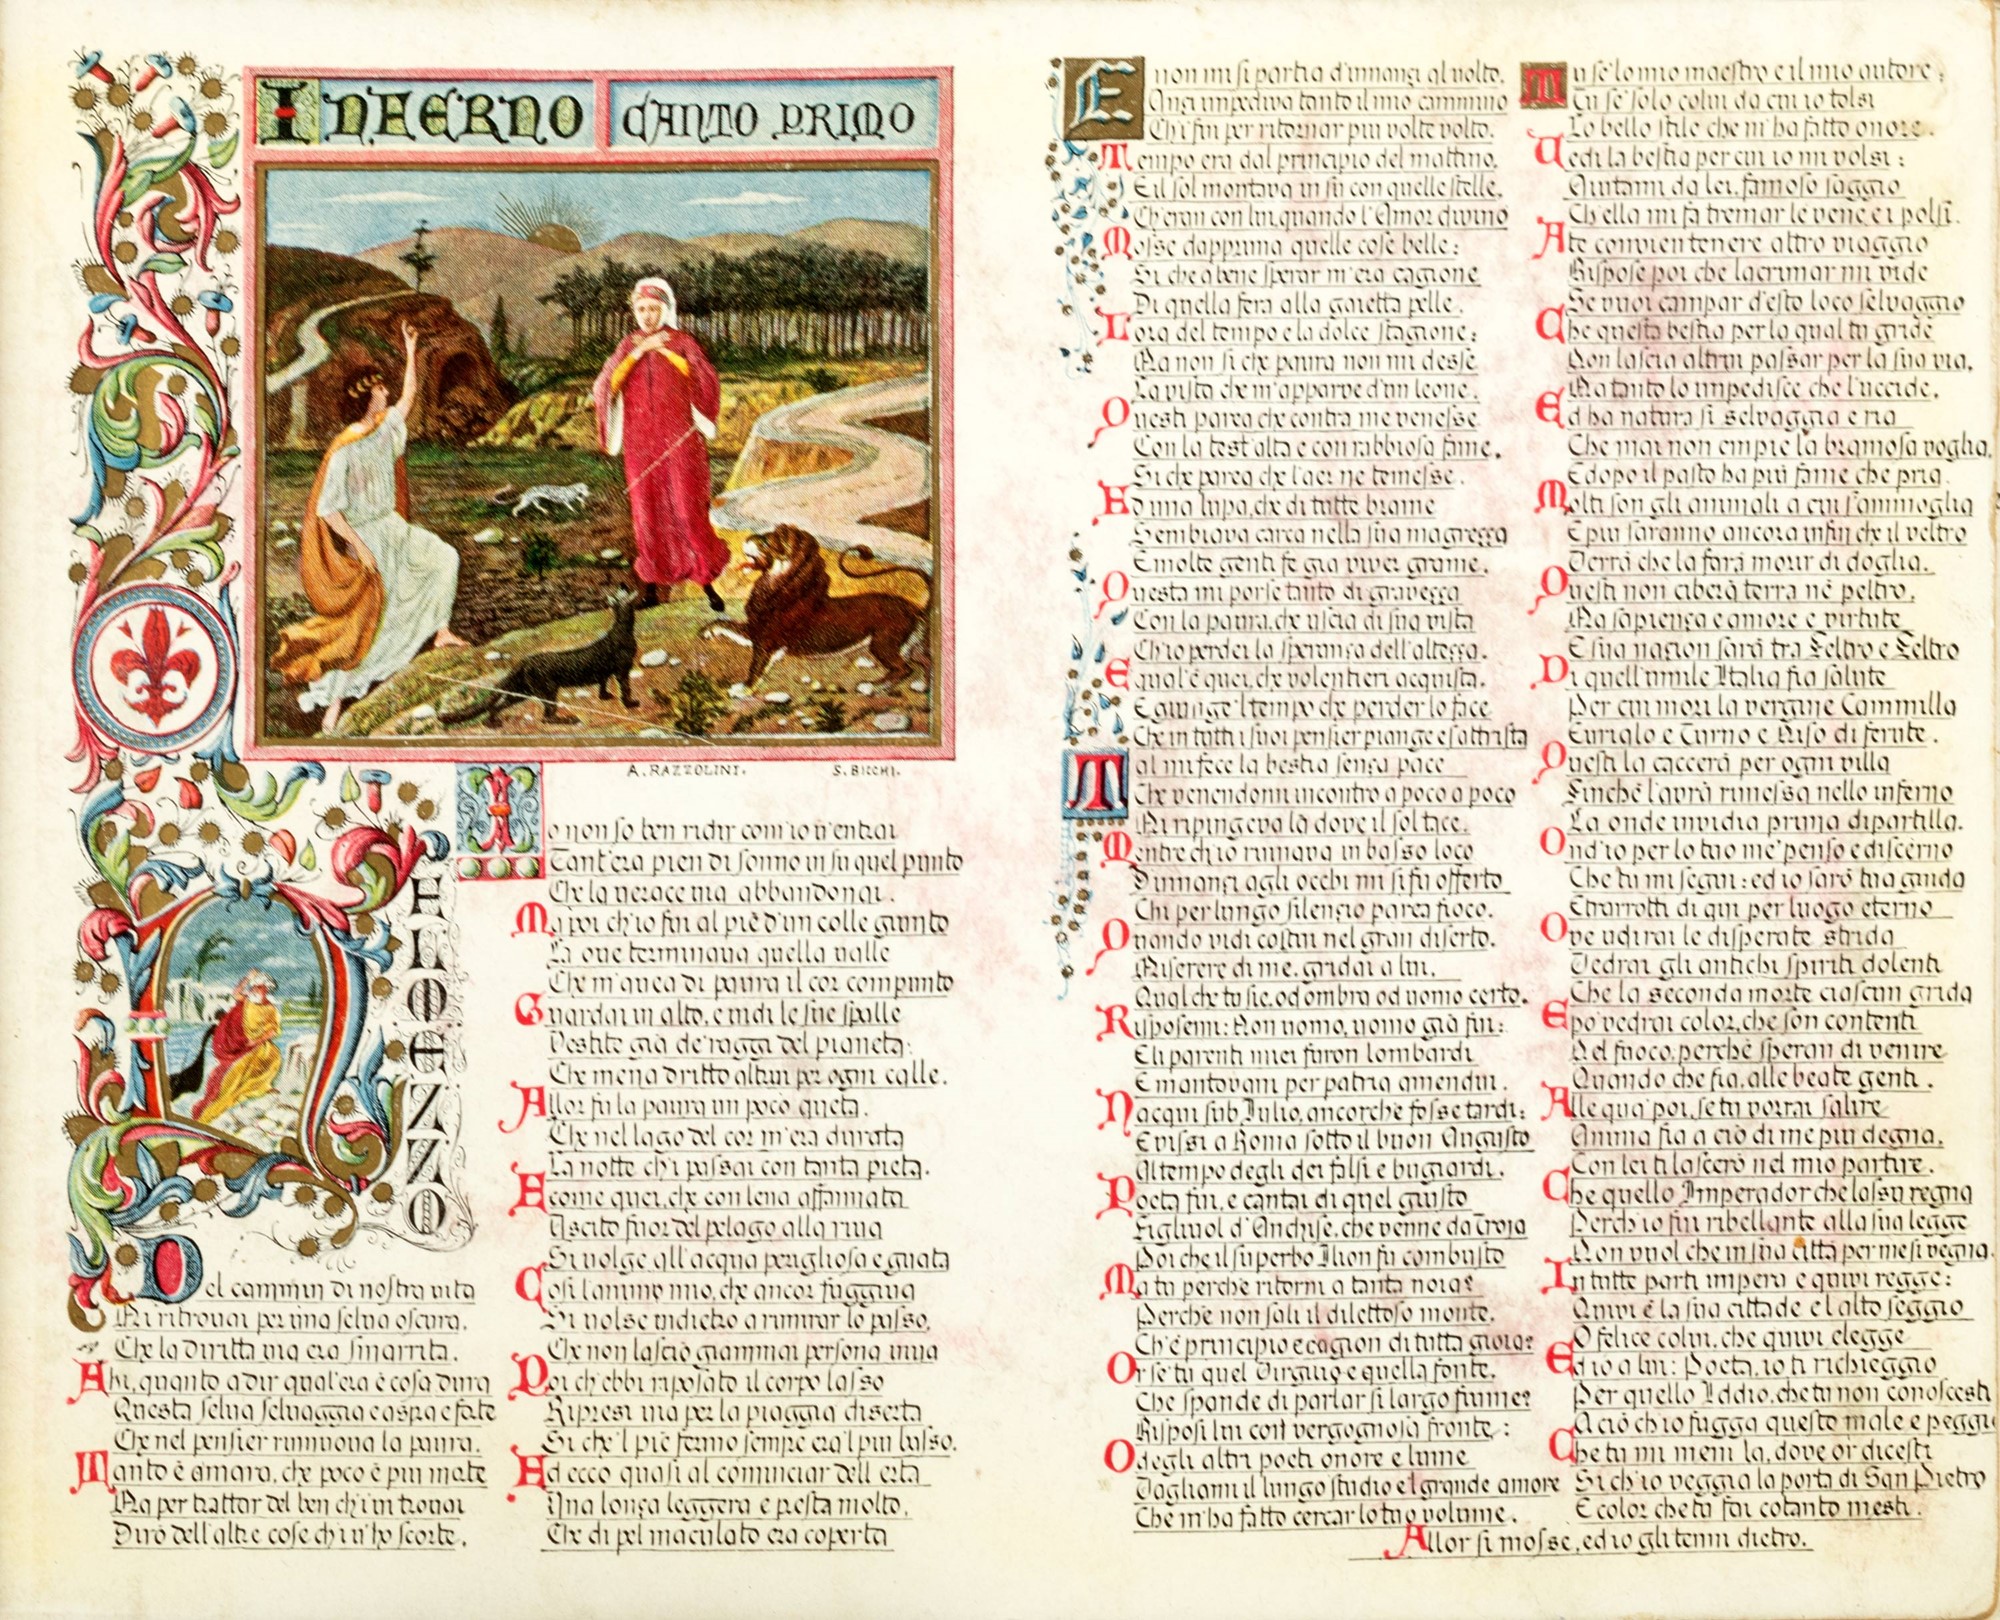 INFERNO
CANTO PRIMO
A. RAZZOLINI.
S. BICCHI.
NEL MEZZO
Del cammin di nostra vita
Mi ritrovai per una selva oscura,
Che la diritta via era smarrita.
Ahi, quanto a dir qual'era è cosa dura
Questa selva selvaggia e aspra e forte
Che nel pensier rinnuova la paura.
Tanto è amara, che poco è più morte
Ma per trattar del ben ch'i' vi trovai
Dirò dell'altre cose ch'i' v'ho scorte.
Io non so ben ridir com'io v'entrai
Tant'era pien di sonno in su quel punto
Che la verace via abbandonai.
Ma poi ch'io fui al piè d'un colle giunto
Là ove terminava quella valle
Che m'avea di paura il cor compunto
Guardai in alto, e vidi le sue spalle
Vestite già de' raggi del pianeta;
Che mena dritto altrui per ogni calle.
Allor fu la paura un poco queta.
Che nel lago del cor m'era durata
La notte ch'i' passai con tanta pieta.
E come quei, che con lena affannata
Uscito fuor del pelago alla riva
Si volge all'acqua perigliosa e guata
Così l'animo mio, che ancor fuggiva
Si volse indietro a rimirar lo passo,
Che non lasciò giammai persona viva
Poi ch'ebbi riposato il corpo lasso
Ripresi via per la piaggia diserta
Sì che 'l piè fermo sempre era 'l più basso.
Ed ecco quasi al cominciar dell'erta
Una lonza leggera e presta molto,
Che di pel maculato era coperta
E non mi si partia d'innanzi al volto.
Anzi impediva tanto il mio cammino
Ch'i' fui per ritornar più volte volto.
Tempo era dal principio del mattino,
E il sol montava in su con quelle stelle,
Ch'eran con lui, quando l'Amor divino
Mosse dapprima quelle cose belle:
Sì che a bene sperar m'era cagione
Di quella fera alla gaietta pelle.
L'ora del tempo e la dolce stagione:
Ma non sì che paura non mi desse
La vista che m'apparve d'un leone.
Questi parea che contra me venesse
Con la test'alta e con rabbiosa fame.
Sì che parea che l'aer ne temesse.
Ed una lupa, che di tutte brame
Sembiava carca nella sua magrezza
E molte genti fe' già viver grame.
Questa mi porse tanto di gravezza
Con la paura, che uscia di sua vista
Ch'io perdei la speranza dell'altezza.
E qual'è quei, che volentieri acquista.
E giunge 'l tempo che perder lo face
Che in tutti i suoi pensier piange e s'attrista
Tal mi fece la bestia senza pace
Che venendomi incontro a poco a poco
Mi ripingeva là dove il sol tace.
Mentre ch'io ruinava in basso loco
Dinnanzi agli occhi mi si fu offerto
Chi per lungo silenzio parea fioco.
Quando vidi costui nel gran diserto.
Miserere di me, gridai a lui,
Qual che tu sie, od ombra od uomo certo.
Risposemi: Non uomo, uomo già fui:
E li parenti miei furon lombardi
E mantovani per patria amendui.
Nacqui sub Julio, ancorchè fosse tardi:
E vissi a Roma sotto il buon Augusto
Al tempo degli dei falsi e bugiardi.
Poeta fui, e cantai di quel giusto
Figliuol d'Anchise, che venne da Troia
Poi che il superbo Ilion fu combusto
Ma tu perchè ritorni a tanta noia?
Perchè non sali il dilettoso monte,
Ch'è principio e cagion di tutta gioia?
Or se' tu quel Virgilio e quella fonte,
Che spande di parlar sì largo fiume?
Risposi lui con vergognosa fronte:
O degli altri poeti onore e lume
Vagliami il lungo studio e 'l grande amore
Che m'ha fatto cercar lo tuo volume.
Tu se' lo mio maestro e il mio autore;
Tu se' solo colui da cui io tolsi
Lo bello stile che m'ha fatto onore.
Vedi la bestia per cui io mi volsi:
Aiutami da lei, famoso saggio
Ch'ella mi fa tremar le vene e i polsi.
A te convien tenere altro viaggio
Rispose poi che lacrimar mi vide
Se vuoi campar d'esto loco selvaggio
Che questa bestia per la qual tu gride
Non lascia altrui passar per la sua via,
Ma tanto lo impedisce che l'uccide.
Ed ha natura sì selvaggia e ria
Che mai non empie la bramosa voglia,
E dopo il pasto ha più fame che pria.
Molti son gli animali a cui s'ammoglia
E più saranno ancora infin che il veltro
Verrà che la farà morir di doglia.
Questi non ciberà terra nè peltro,
Ma sapienza e amore e virtute
E sua nazion sarà tra Feltro e Feltro
Di quell'umile Italia fia salute
Per cui morì la vergine Cammilla
Eurialo e Turno e Niso di ferute.
Questi la caccerà per ogni villa
Finchè l'avrà rimessa nello inferno
Là onde invidia prima dipartilla.
Ond'io per lo tuo me' penso e discerno
Che tu mi segui: ed io sarò tua guida
E trarrotti di qui per luogo eterno
Ove udirai le disperate strida
Vedrai gli antichi spiriti dolenti
Che la seconda morte ciascun grida
E po' vedrai color, che son contenti
Nel fuoco, perchè speran di venire
Quando che fia, alle beate genti.
Alle qua' poi, se tu vorrai salire
Anima fia a ciò di me più degna,
Con lei ti lascerò nel mio partire.
Che quello Imperador che lassù regna
Perch'io fui ribellante alla sua legge
Non vuol che in sua città per me si vegna.
In tutte parti impera e quivi regge:
Quivi è la sua cittade e l'alto seggio
O felice colui, che quivi elegge
Ed io a lui: Poeta, io ti richieggio
Per quello Iddio, che tu non conoscesti
A ciò ch'io fugga questo male e peggio
Che tu mi meni là, dove or dicesti
Sì ch'io veggia la porta di San Pietro
E color che tu fai cotanto mesti.
Allor si mosse, ed io gli tenni dietro.